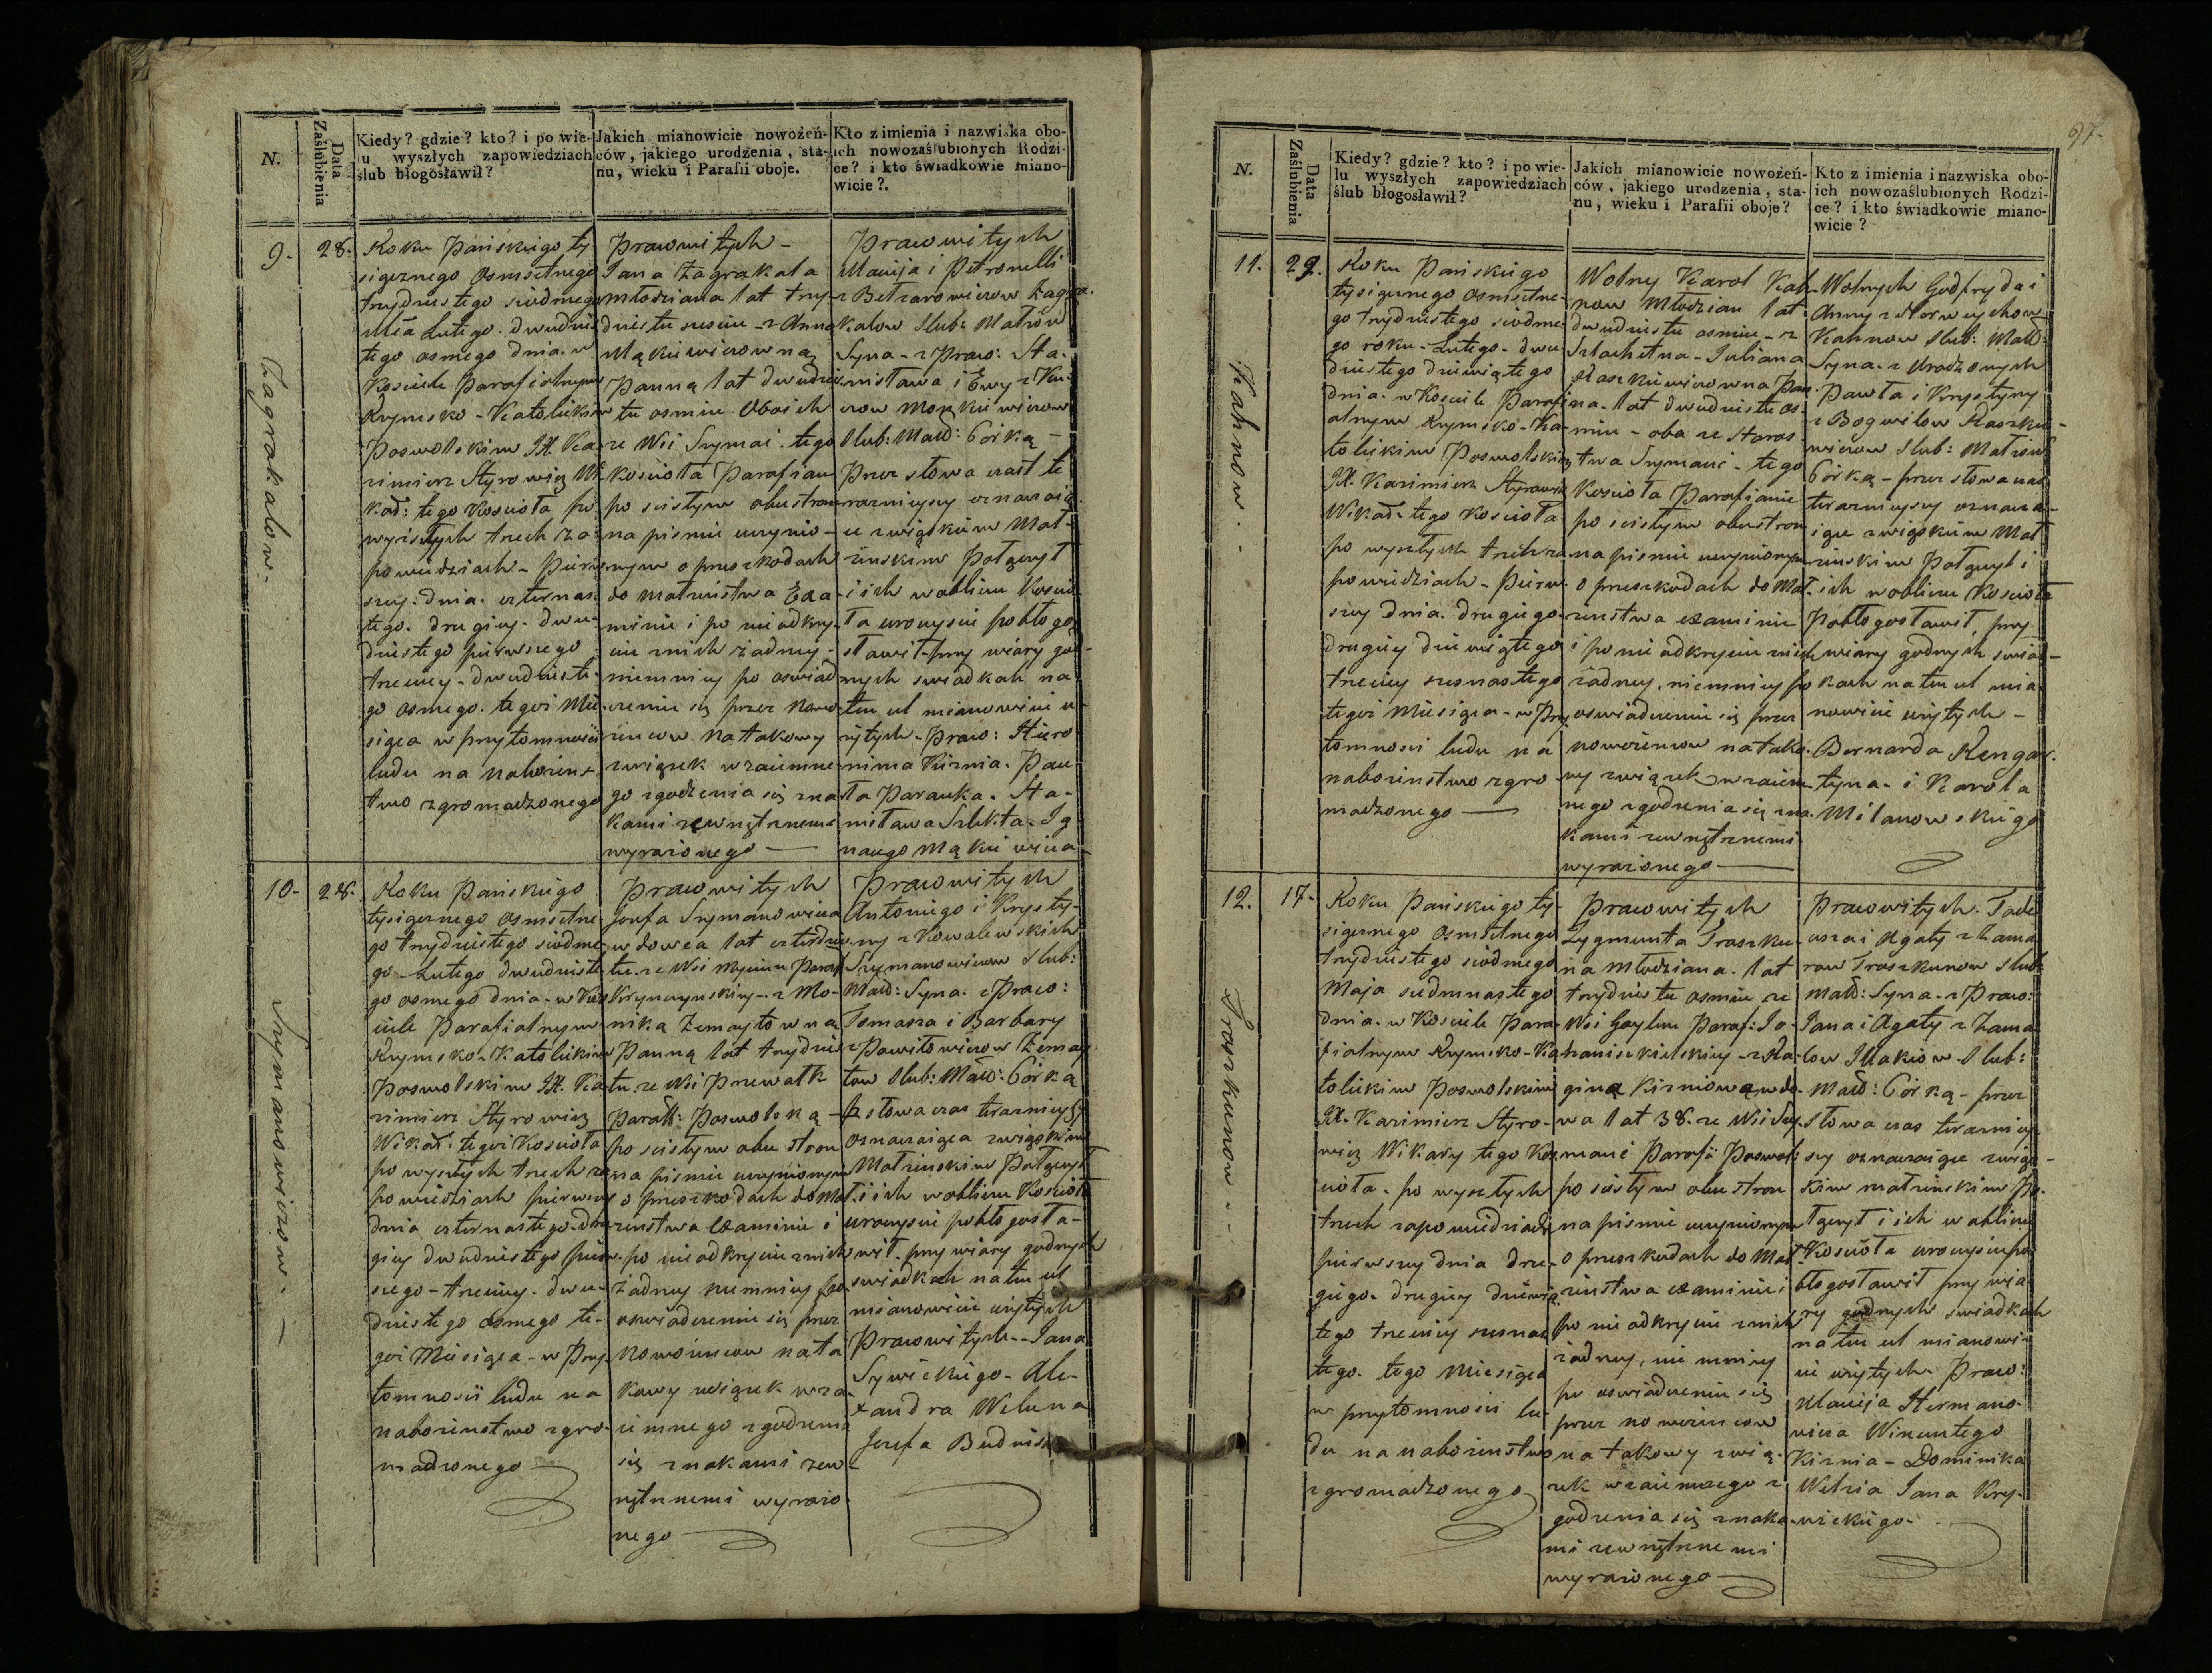 N.
Data
Zaślubienia
Kiedy? gdzie? kto? i po wie-
lu wyszłych zapowiedziach
ślub błogosławił?
Jakich mianowicie nowożeń-
ców, jakiego urodzenia, sta-
nu, wieku i Parafii oboje.
Kto z imienia i nazwiska obo-
ich nowozaślubionych Rodzi-
ce? i kto świadkowie miano-
wicie?.
9.
Zagrakalow.
28.
Roku Pańskiego ty-
siącznego Osmsetnego
trzydziestego siodmego
Mca Lutego. dwudzies
tego osmego dnia. w
Kosciele Parafialnym
Rzymsko-Katolickim
Poswolskim JX. Ka
zimierz Styrowicz Wi
kar: tego Koscioła po
wyszłych trzech za
powiedziach - Pierw
szey. dnia. czternas
tego. drugiey. dwu-
dziestego pierwszego
trzeciey - dwudzieste-
go osmego. tegoż Mie
siąca w przytomności
ludu na nabożeńs
two zgromadzonego
Prawowitych -
Jana Zagrakala
młodziana lat trzy-
dziestu sześciu - z Anna
Mąkiewiczowną
Panną lat dwudzies
tu osmiu. Oboich
ze Wsi Szymai. tego
kosciołа Parafian
po scisłym obustron
na pismie uczynio-
nym o przeszkodach
do Małżeństwa Exa-
minie i po nieodkry-
ciu z nich żadney -
niemniey po oswiad
czeniu się przez Nowo
żeńcow na takowy
związek wzaiemne
go zgodzenia się zna
kami zewnętrznemi
wyrażonego
Prawowitych
Macieja i Petronelli
z Betzarowiczow Zagra.
kalow Slub: Małżów
Syna - z Praw: Sta-
nisława i Ewy z Ku-
cow Mąkiewiczow
Slub: Małż: Córką -
Przez słowa czas te
razniejszy oznaczaią
ce związkiem Mał-
żeńskim Połączył
i ich w obliczu Koscio
ła uroczyscie pobłogo
sławił przy wiary god
nych swiadkach na
ten cel mianowicie u-
żytych - Praw: Hiero
nima Kiznia. Paw
ła Parauka. Sta-
nisława Szlekta. Ig
nacego Mąkiewicza
10.
Szymanowiczow. -
28.
Roku Pańskiego
tysiącznego osmsetne
go trzydziestego siodme
go - Lutego dwudzieste
go osmego dnia - w Kos
ciele Parafialnym
Rzymsko-Katolickim
Poswolskim JX. Ka
zimierz Styrowicz
Wikar: tegoż Kosciola
po wyszłych trzech za
powiedziach pierwszey
dnia czternastego. dru
giey dwudziestego pierw
szego - trzeciey - dwu-
dziestego osmego te-
goż Miesiąca - w Przy
tomności ludu na
nabożeństwo zgro-
madzonego
Prawowitych
Jozefa Szymanowicza
wdowca lat czterdzies
tu. ze Wsi Paraf:
Krynczynskiey - z Mo-
niką Zemaytowna
Panną lat trzydzies
tu. ze Wsi Przewałk
Parafii: Poswolską -
po scisłym obu stron
na pismie uczynionym
o przeszkodach do Mał
żeństwa examinie i
po nieodkryciu z nich
żadney niemniey po
oswiadczeniu się przez
Nowożeńcow na ta
kowy związek wza
iemnego zgodzenia
się znakami zew
nętrznemi wyrażo
nego
Prawowitych
Antoniego i Krysty-
ny z Kowalewskich
Szymanowiczow Slub:
Małż: Syna. z Praw:
Tomasza i Barbary
z Pawiłowiczow Zemay
tow Slub: Małż: Córką
p słowa czas teraznieyszy
oznaczaiąca związkiem
Małżeńskim Połączył
i ich w obliczu Kosciola
uroczyscie pobłogosła-
wił. przy wiary godnych
swiadkach na ten cel
mianowicie użytych
Prawowitych - Jana
Sywickiego. Ale-
xandra Weluna
Jozefa Budnika
97.
N.
Data
Zaślubienia
Kiedy? gdzie? kto? i po wie-
lu wyszłych zapowiedziach
ślub błogosławił?
Jakich mianowicie nowożeń-
ców, jakiego urodzenia, sta-
nu, wieku i Parafii oboje?
Kto z imienia i nazwiska obo-
ich nowozaślubionych Rodzi-
ce? i kto świadkowie miano-
wicie?
11.
Kahnow.
29.
Roku Pańskiego
tysiącznego osmsetne-
go trzydziestego siodme
go roku - Lutego - dwu
dziestego dziewiątego
dnia - w Kosciele Parafi
alnym Rzymsko-Ka-
tolickim Poswolskim
JX. Kazimierz Styrowicz
Wikar: tego Kosciola
po wyszłych trzech za
powiedziach - Pierw-
szey dnia. drugiego.
drugiey dziewiątego
trzeciey szesnastego
tegoż Miesiąca - w Przy
tomności ludu na
nabożeństwo zgro
madzonego
Wolny Karol Kah-
now Młodzian lat
dwudziestu osmiu - z
Szlachetną - Julianą
Raszkiewiczowną Pan
ną - lat dwudziestu os-
miu - oba ze Staros
twa Szymanie - tego
Kosciola Parafianie
po scisłym obustron
na pismie uczynionym
o przeszkodach do Mał
żeństwa examinie
i po nieodkryciu z nich
żadney, niemniey po
oswiadczeniu się przez
nowożeńcow na tako
wy związek wzaiem
nego zgodzenia się zna
kami zewnętrznemi
wyrażonego
Wolnych Godfryda i
Anny z
Kahnow Slub: Małż:
Syna - z Urodzonych
Pawła i Krystyny
z Bogwilow Raszkie-
wiczow Slub: Małżów
Córką - przez słowa czas
teraznieyszy oznacza-
iące związkiem Mał
żeńskim Połączył i
ich w obliczu Kosciola
Pobłogosławił, przy
wiary godnych swiad-
kach na ten cel mia
nowicie użytych -
Bernarda Rengar.
tyna - i Karola
Milanowskiego
12.
Traszkunow. -
17.
Roku Pańskiego ty-
siącznego Osmsetnego
trzydziestego siodmego
Maja siedmnastego
dnia. w Kosciele Para-
fialnym Rzymsko-Ka
tolickim Poswolskim
JX. Kazimierz Styro-
wicz Wikary tego Kos
ciola - po wyszłych
trzech zapowiedziach
pierwszey dnia dru-
giego. drugiey dziewią
tego trzeciey szesnas
tego. tego Miesiąca
w przytomności lu-
du na nabożeństwo
zgromadzonego
Prawowitych
Zygmunta Traszku-
na Młodziana. lat
trzydziestu osmiu ze
Wsi Gaylun Paraf: Jo-
haniszkielskiey - z Ra-
giną Kizniową wdo-
wa lat 38. ze Wsi Szy-
manie Parafii Poswol:
po scisłym obustron
na pismie uczynionym
o przeszkodach do Mał
żeństwa examinie i
po nieodkryciu z nich
żadney, niemniey
po oswiadczeniu się
przez nowożeńcow
na takowy zwią-
zek wzaiemnego z
godzenia się znaka-
mi zewnętrznemi
wyrażonego
Prawowitych. Tade
usza i Agaty z Zama
row Traszkunow Slub:
Małż: Syna - z Praw:
Jana i Agaty z Zama
low Slub:
Małż: Córką - przez
słowa czas terazniey
szy oznaczaiące związ-
kiem małżeńskim Po-
łączył i ich w obliczu
Kosciola uroczyscie po
błogosławił przy wia
ry godnych swiadkach
na ten cel mianowi-
cie użytych. Praw:
Macieja Hermano-
wicza Wincentego
Kiznia - Dominika
Wełzia Jana Kry-
wickiego.